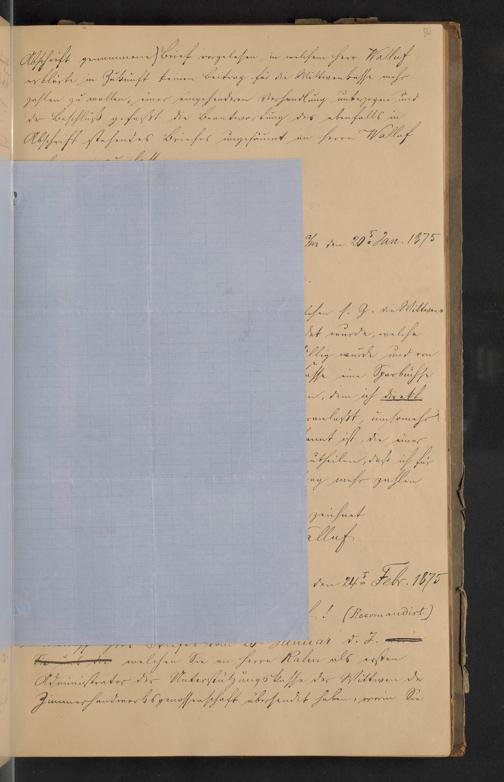 Abschrift genommene) Brief vorgelesen, in welchem Herr Wallaf
erklärte in Zukunft keinen Beitrag für die Wittwenkasse mehr
zahlen zu wollen, einer eingehenderen Verhandlung unterzogen und
der Beschluß gefaßt die Beantwortung des ebenfalls in
Abschrift stehenden Briefes ungesäumt an Herrn Wallaf
den 20t Jan. 1875
s. Z. die Wittwen
wurde, welche
wurde und von
eine Sparbüchse
dem ich direkt
umsomehr
ist, die einer
daß ich für
mehr zahlen
zeichnet
Wallaf.
den 24t Febr. 1875
! (Recomandirt)
vom Januar d. J.
welchen Sie an Herrn Kahn als ersten
Administrator der Unterstützungskasse der Wittwen der
Zimmerhandwerksgenossenschaft übersendet haben, worin Sie